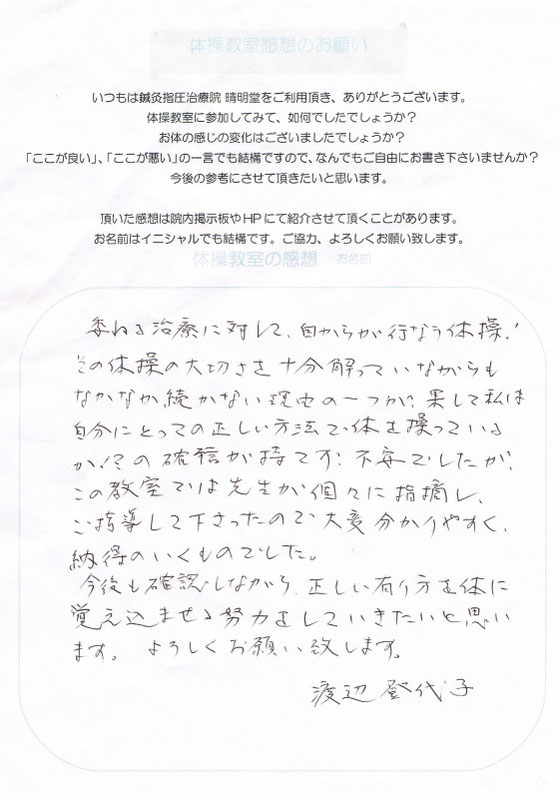 体操教室感想のお願い
いつもは鍼灸指圧治療院 晴明堂をご利用頂き、ありがとうございます。
体操教室に参加してみて、如何でしたでしょうか？
お体の感じの変化はございましたでしょうか？
「ここが良い」、「ここが悪い」の一言でも結構ですので、なんでもご自由にお書き下さいませんか？
今後の参考にさせて頂きたいと思います。
頂いた感想は院内掲示板やHPにて紹介させて頂くことがあります。
お名前はイニシャルでも結構です。ご協力、よろしくお願い致します。
体操教室の感想 お名前
委ねる治療に対して、自からが行なう体操！
その体操の大切さを十分解っていながらも
なかなか続かない理由の一つが、果して私は
自分にとっての正しい方法で体を操っている
か！？の確信が持てず、不安でしたが、
この教室では先生が個々に指摘し、
ご指導して下さったので大変分かりやすく、
納得のいくものでした。
今後も確認しながら、正しい有り方を体に
覚え込ませる努力をしていきたいと思い
ます。 よろしくお願い致します。
渡辺登代子